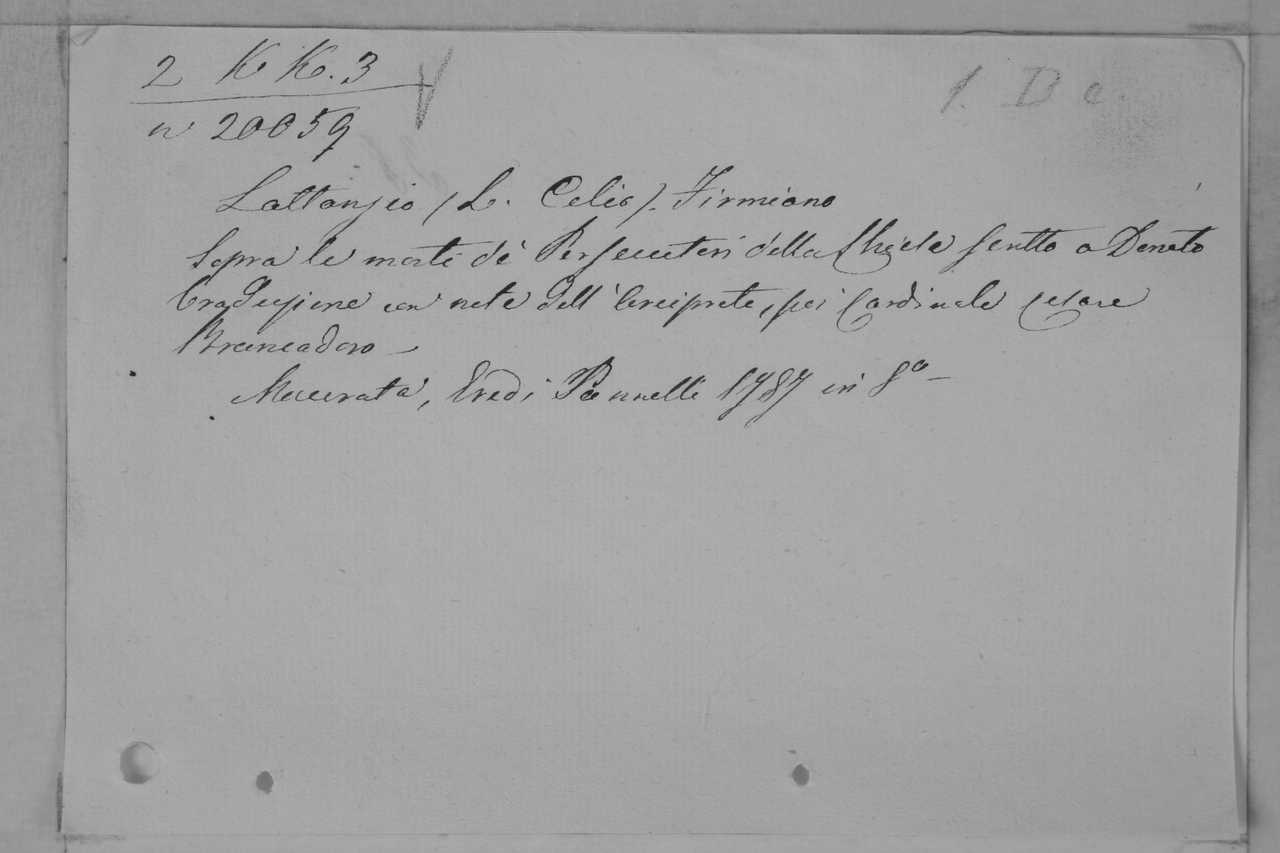 2 K K. 3
n 20059
1. D c.
Lattanzio (L. Celio). Firmiano
Sopra le morti de' Persecutori della Chiesa scritto a Donato
traduzione con note dell' Arciprete, poi Cardinale Cesare
Brancadoro
Macerata, Eredi Pannelli 1787 in 8º